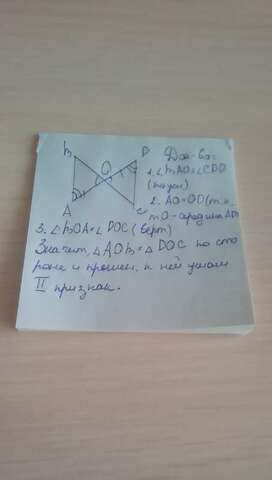 m
D
O
Док-во:
1. ∠mAO=∠CDO
A
(по усл)
2. AO=OD (т.к.
C
т.О - середина AD)
3. ∠mOA=∠DOC (верт)
Значит, △AOm=△DOC по сто
роне и прилеж. к ней углам
II признак.